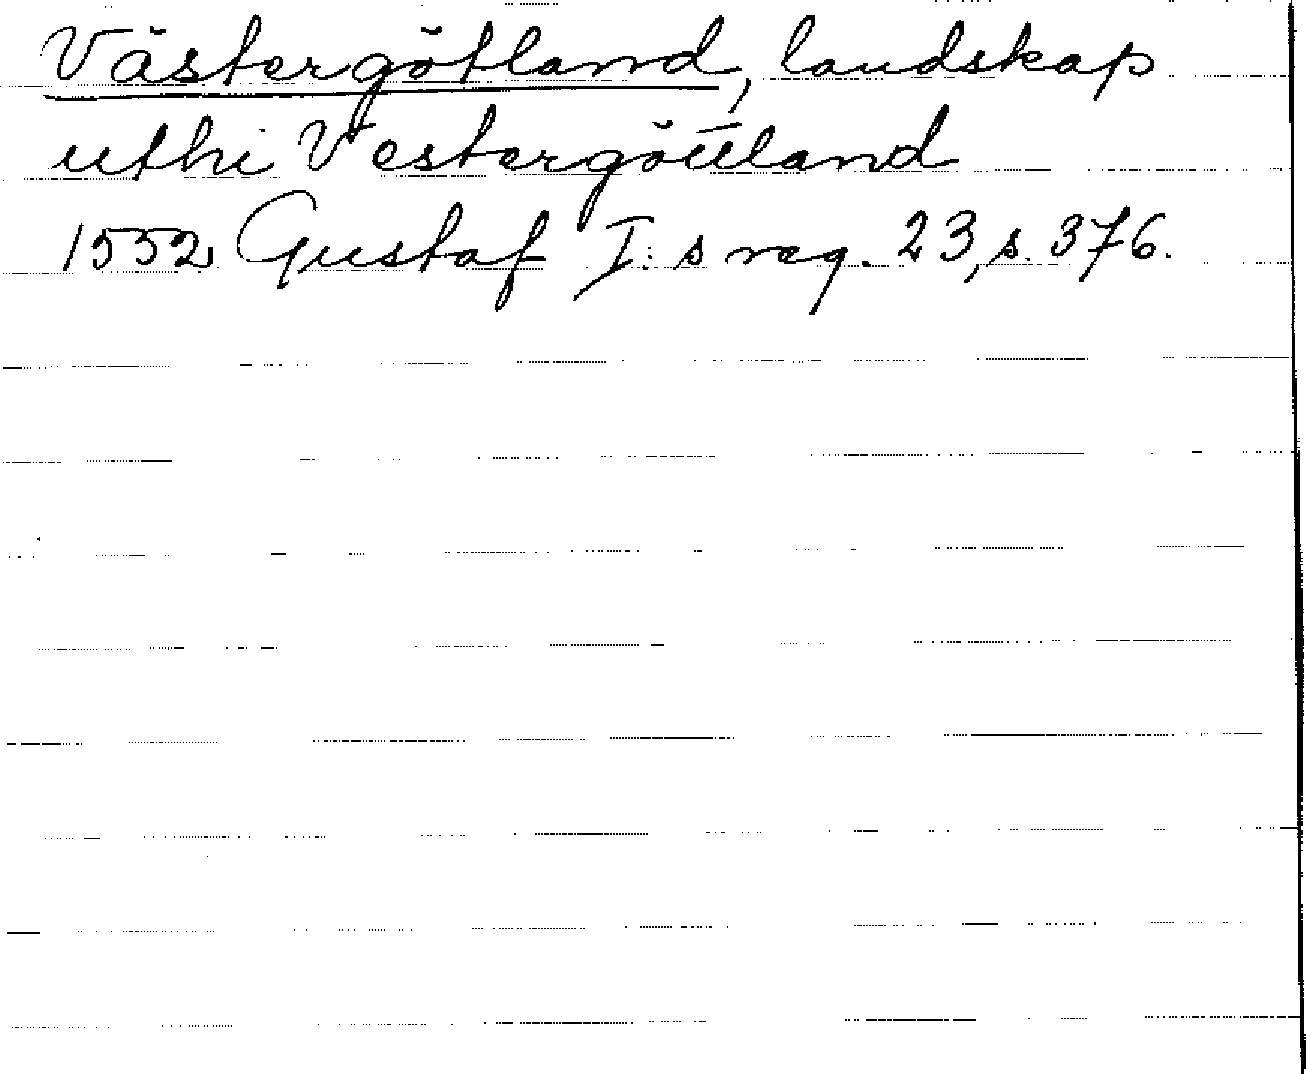 Västergötland, landskap
uthi Vestergöttland
1552 Gustaf I:s reg. 23, s. 376.